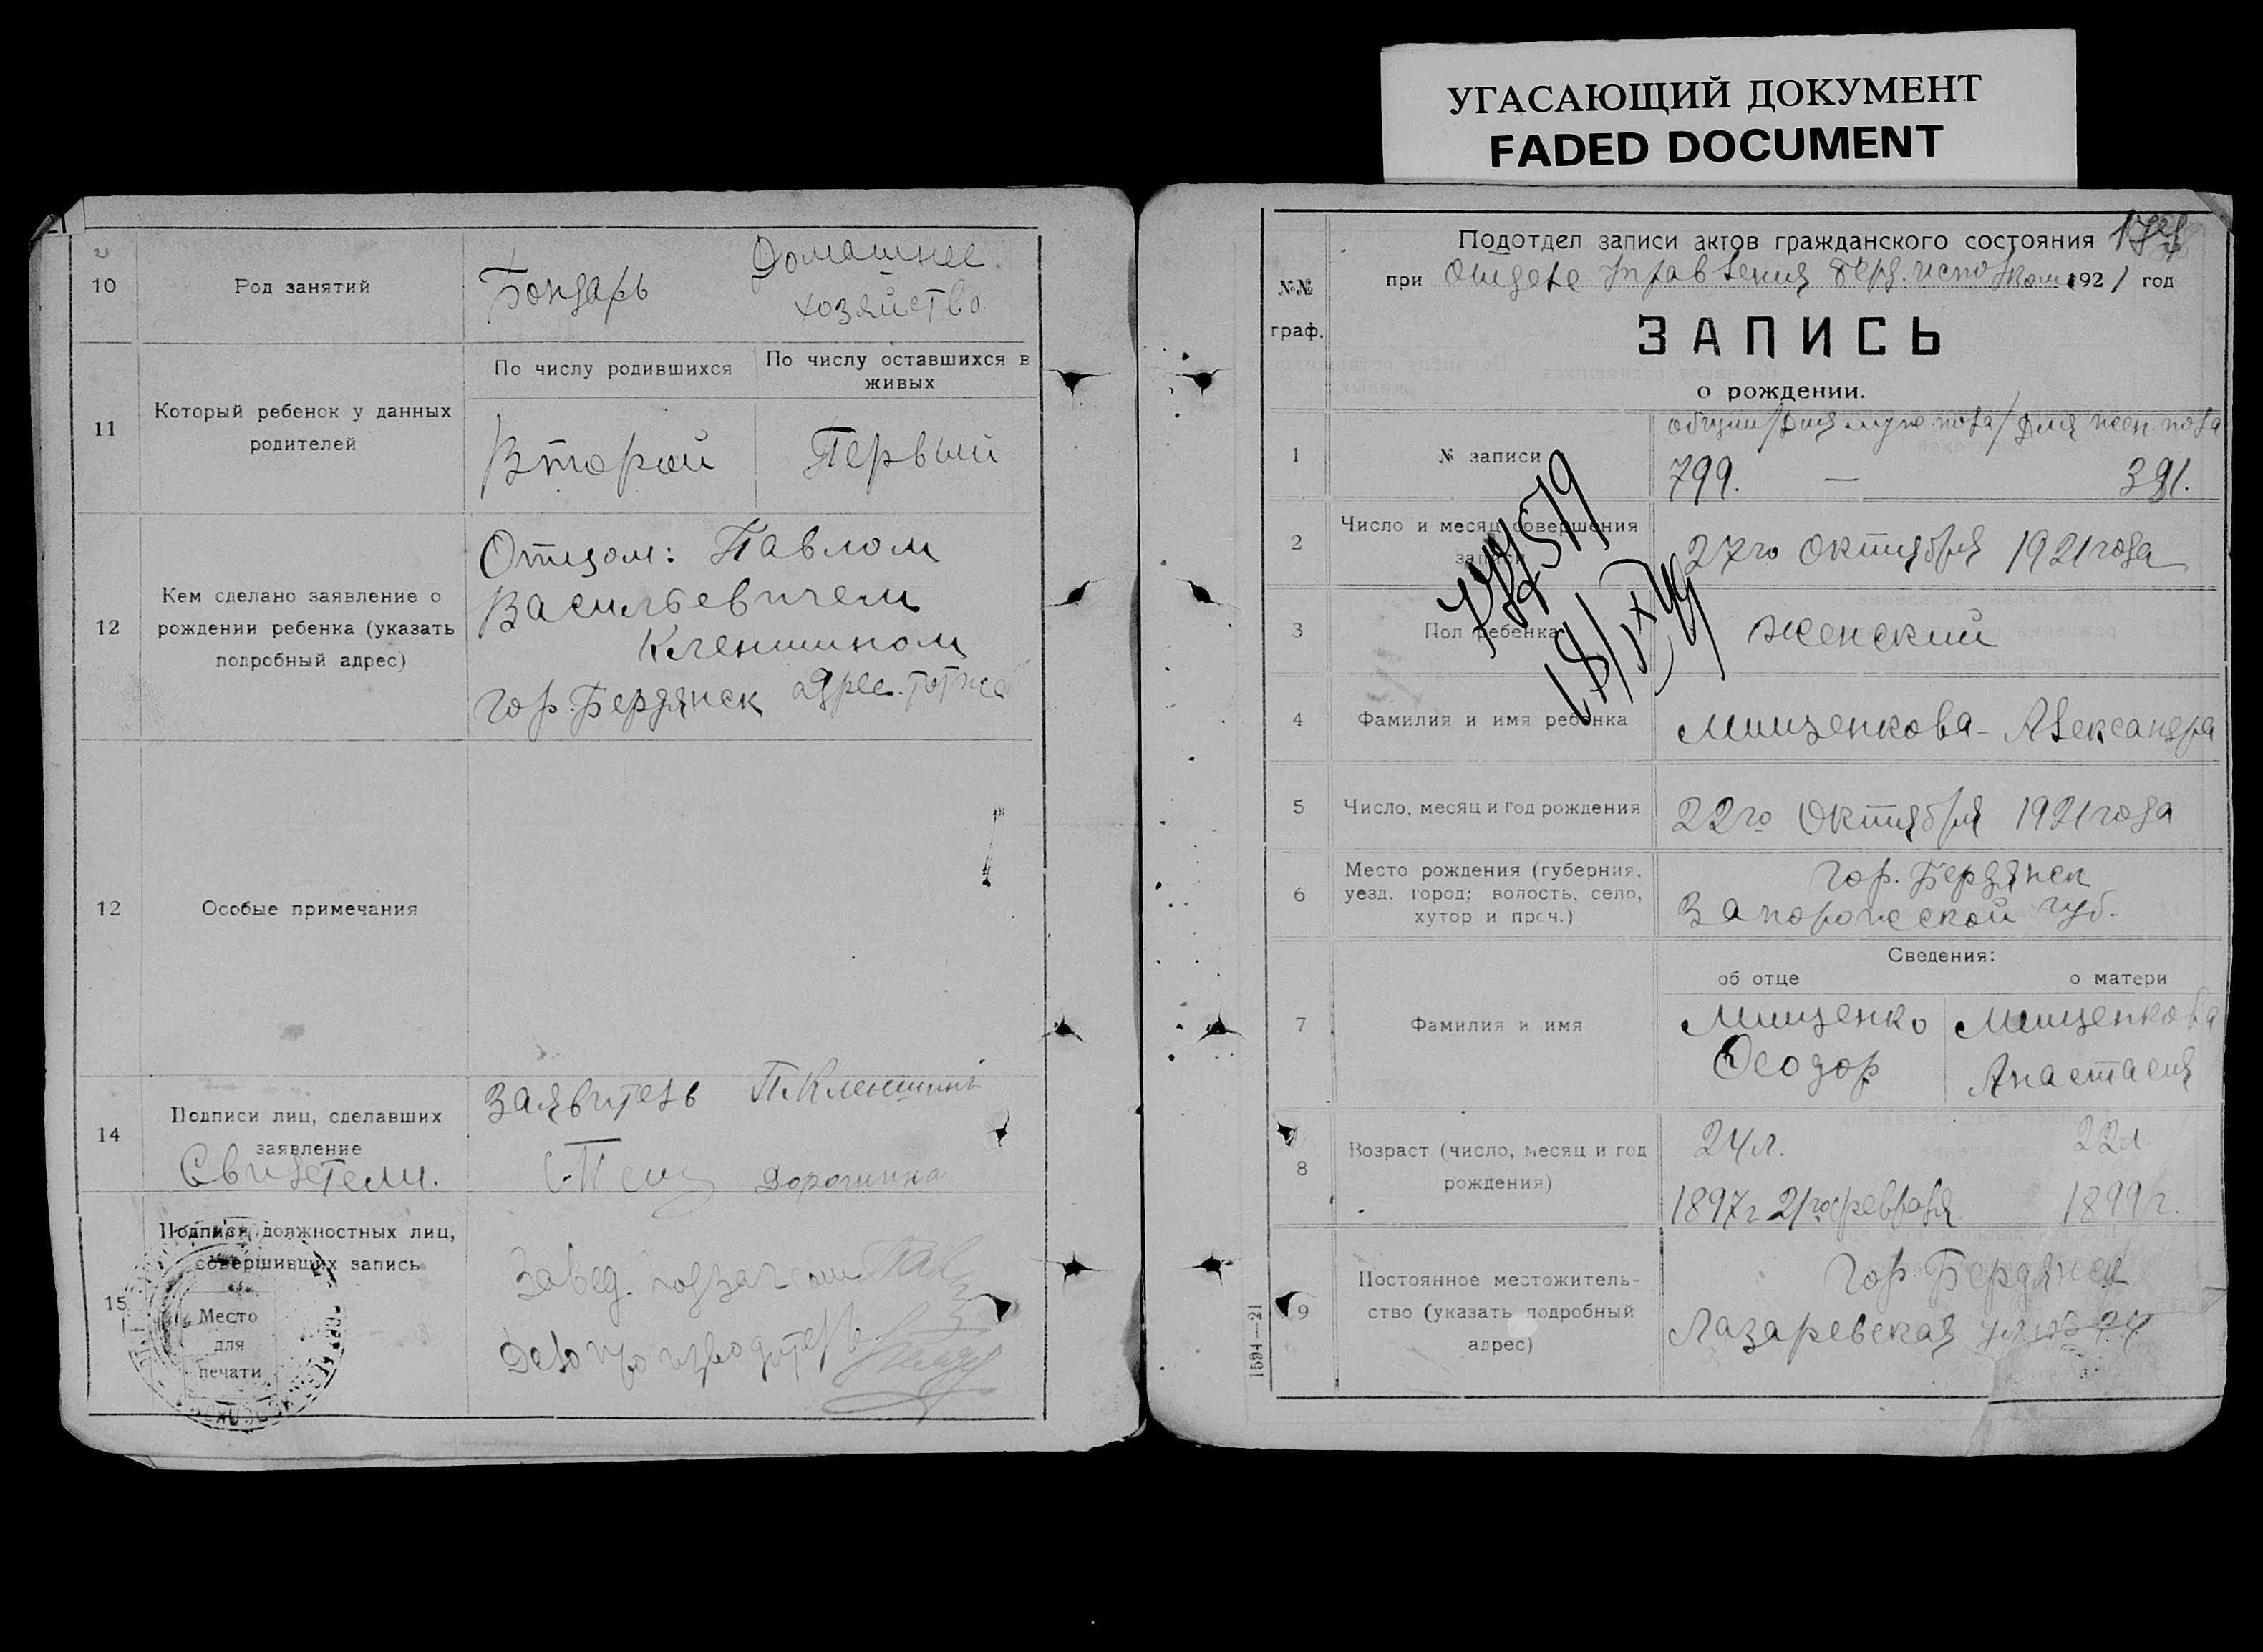 УГАСАЮЩИЙ ДОКУМЕНТ
FADED DOCUMENT
10
Род занятий
Бондарь
Домашнее
хозяйство.
11
Который ребенок у данных
родителей
По числу родившихся
По числу оставшихся в
живых
Второй
Первый
12
Кем сделано заявление о
рождении ребенка (указать
подробный адрес)
Отцом: Павлом
Васильевичем
Кленшином
гор. Бердянск адрес. тотже
12
Особые примечания
14
Подписи лиц, сделавших
заявление
Свидетели.
Заявитель П. Кленшинъ
Дорошина
15
Подписи должностных лиц,
совершивших запись
Место
для
печати
Завед.
Делопроизводитель
№№
граф.
Подотдел записи актов гражданского состояния
при Отделе Управления Берд. исполком 1921 год
ЗАПИСЬ
о рождении.
1
№ записи
общий/для муж. пола/для жен. пола
799. — 391.
2
Число и месяц совершения
записи
27го Октября 1921 года
3
Пол ребенка
женский
4
Фамилия и имя ребенка
Мищенкова - Александра
5
Число, месяц и год рождения
22го Октября 1921 года
6
Место рождения (губерния,
уезд, город; волость, село,
хутор и проч.)
гор. Бердянск
Запорожской губ.
Сведения:
об отце
о матери
7
Фамилия и имя
Мищенко
Феодор
Мищенкова
Анастасия
8
Возраст (число, месяц и год
рождения)
24 л.
22 л.
1897 г 21го февраля
1899 г.
9
Постоянное местожитель-
ство (указать подробный
адрес)
гор. Бердянск
Лазаревская ул
1594—21